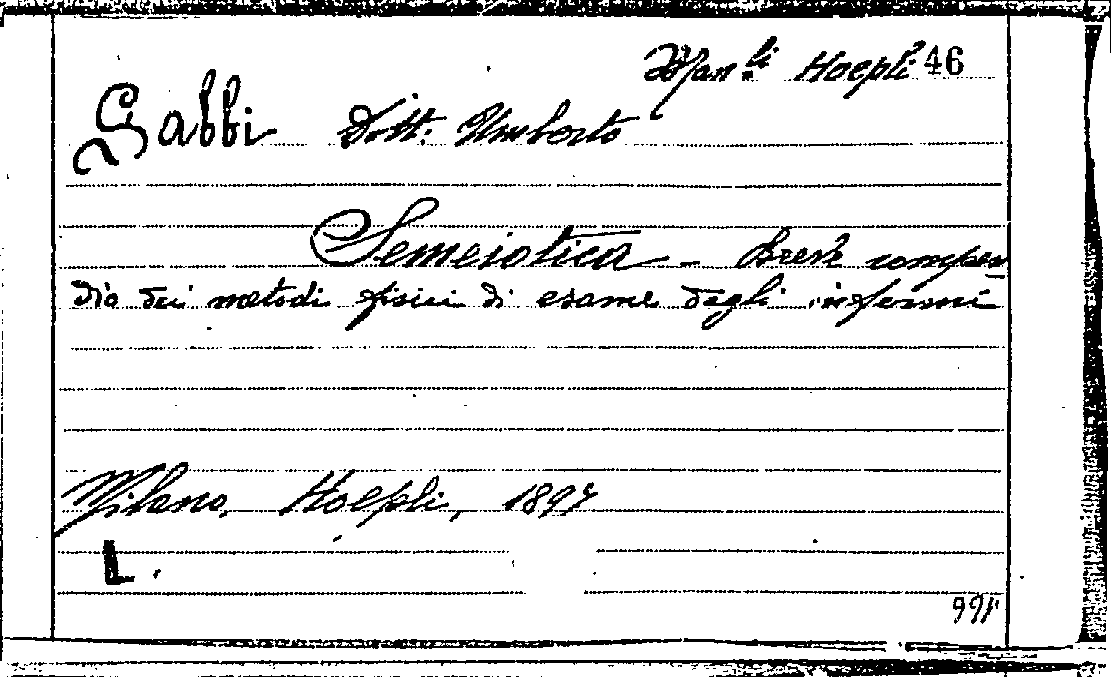 Man.li Hoepli 46
Gabbi Dott. Umberto
Semeiotica - Breve compen
dio dei metodi fisici di esame degli infermi
Milano, Hoepli, 1897
L.